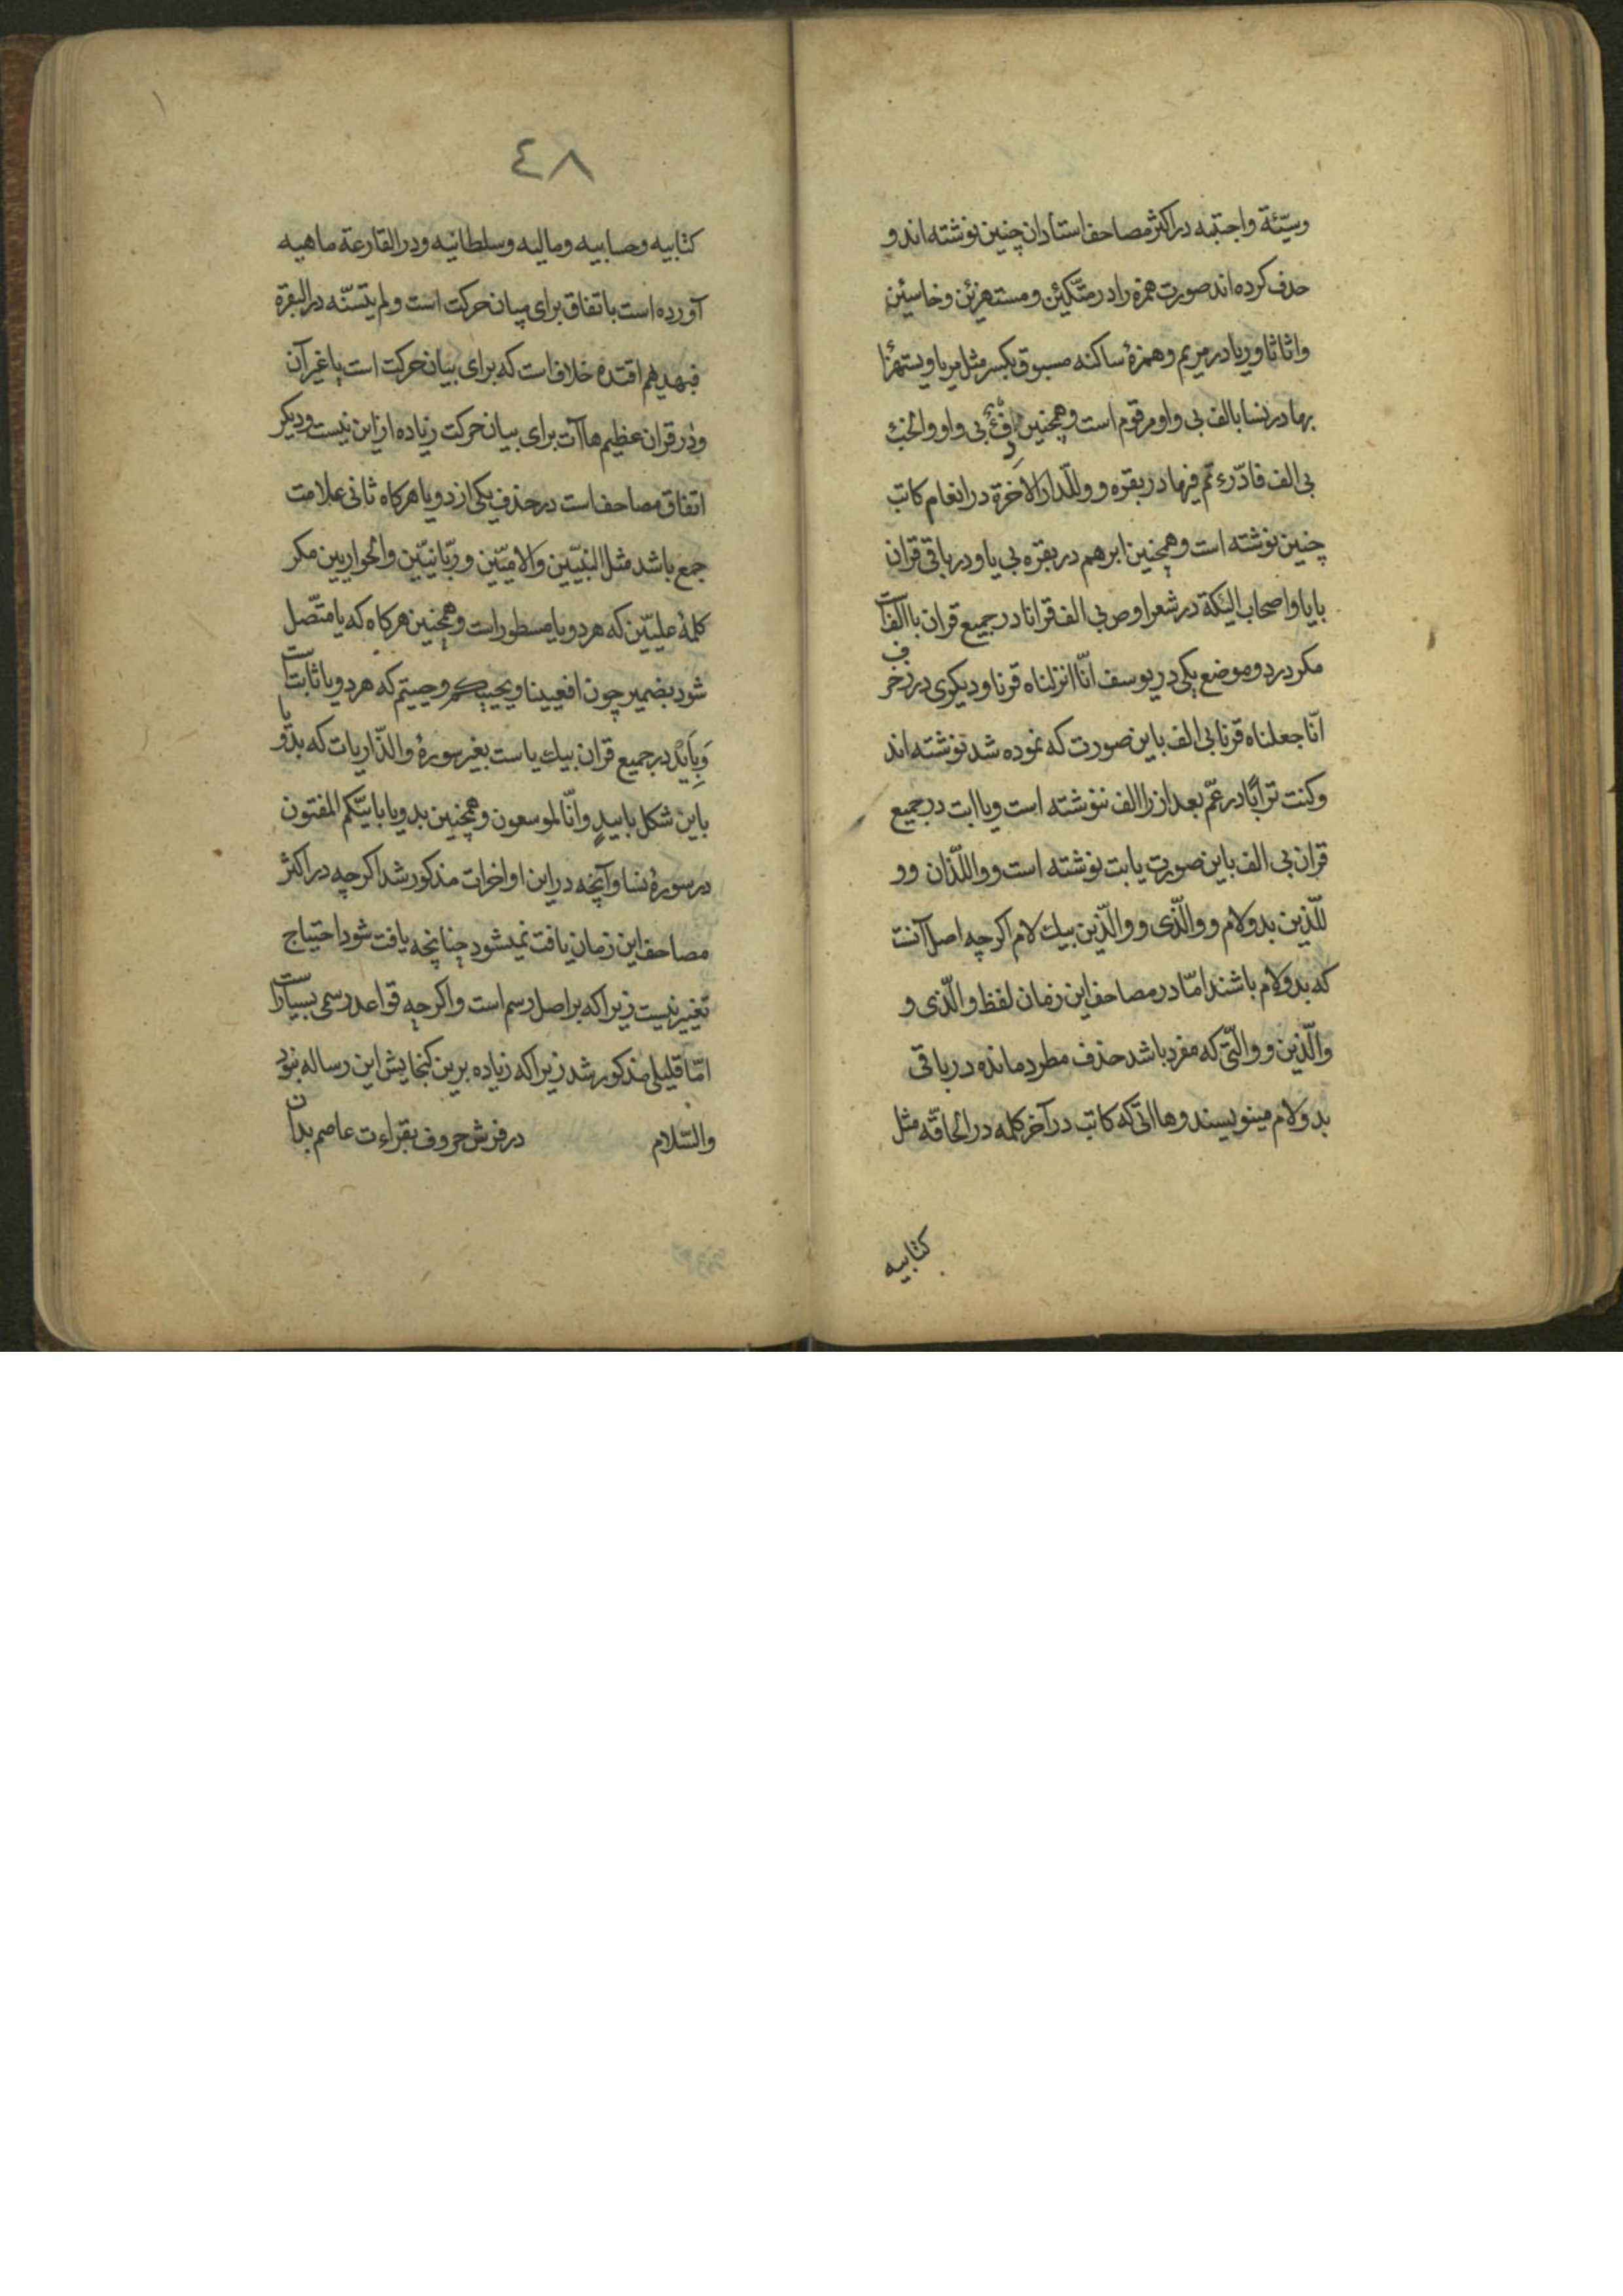 وسیّئة واجتبه در اکثر مصاحف استادان چنین نوشته اند و
حذف کرده اند صورت همزه را در متّکئن و مستهزئن و خاسئن
واثاثا وریا در مریم و همزهٔ ساکنه مسبوق بکسر مثل مریا ویستهزا
بها در نسا بالف بی واو مرقوم است و همچنین دفئ بی واو والخبٔ
بی الف فادّرءتم فیها در بقره و وللّدار الاخرة در انعام کاتب
چنین نوشته است و همچنین ابرهم در بقره بی یا و در باقی قران
بایا واصحاب الیٔکة در شعرا و ص بی الف قرانا در جمیع قران باالف است
مکر در دو موضع یکی در یوسف انّا انزلناه قرنا و دیکری در زخرف
انّا جعلناه قرنا بی الف باین صورت که نموده شد نوشته اند
وکنت ترابًا در عمّ بعد از را الف ننوشته است و یاابت در جمیع
قران بی الف باین صورت یابت نوشته است و واللّذان و و
للّذین بدو لام و والّذی و والّذین بیك لام اکرچه اصل آنست
که بدو لام باشند امّا در مصاحف این زمان لفظ والّذی و
والّذین و والّتی که مفرد باشد حذف مطرد مانده در باقی
بدو لام مینویسند و هاائی که کاتب در آخر کلمه در الحاقّه مثل
کتابیه
٤٨
کتابیه وحسابیه ومالیه وسلطانیه و در القارعة ماهیه
آورده است باتفاق برای بیان حرکت است و لم یتسنّه در البقرة
فبهدیهم اقتده خلاف است که برای بیان حرکت است یا غیر آن
و در قران عظیم هاآت برای بیان حرکت زیاده از این نیست و دیکر
اتفاق مصاحف است در حذف یکی از دو یا هرکاه ثانی علامت
جمع باشد مثل النبیّین والامیّین و ربّانیّین والحواریین مکر
کلمهٔ علیّین که هر دو یا مسطور است و همچنین هرکاه که یا متّصل
شود بضمیر چون افعیینا و یحییکم و حییتم که هر دو یا ثابت است
وَبِاَیْدٍ در جمیع قران بیك یا است بغیر سورهٔ والذّاریات که بدو یا
باین شکل باییدٍ وانّا لموسعون و همچنین بدو یا بایّیکم المفتون
در سورهٔ نسا و آنچه در این اواخرات مذکور شد اکرچه در اکثر
مصاحف این زمان یافت نمیشود چنانچه یافت شود احتیاج
تغییر نیست زیرا که بر اصل رسم است و اکرچه قواعد رسمی بسیار است
امّا قلیلی مذکور شد زیرا که زیاده برین کنجایش این رساله نبود
والسّلام در فرش حروف بقراءت عاصم بدان